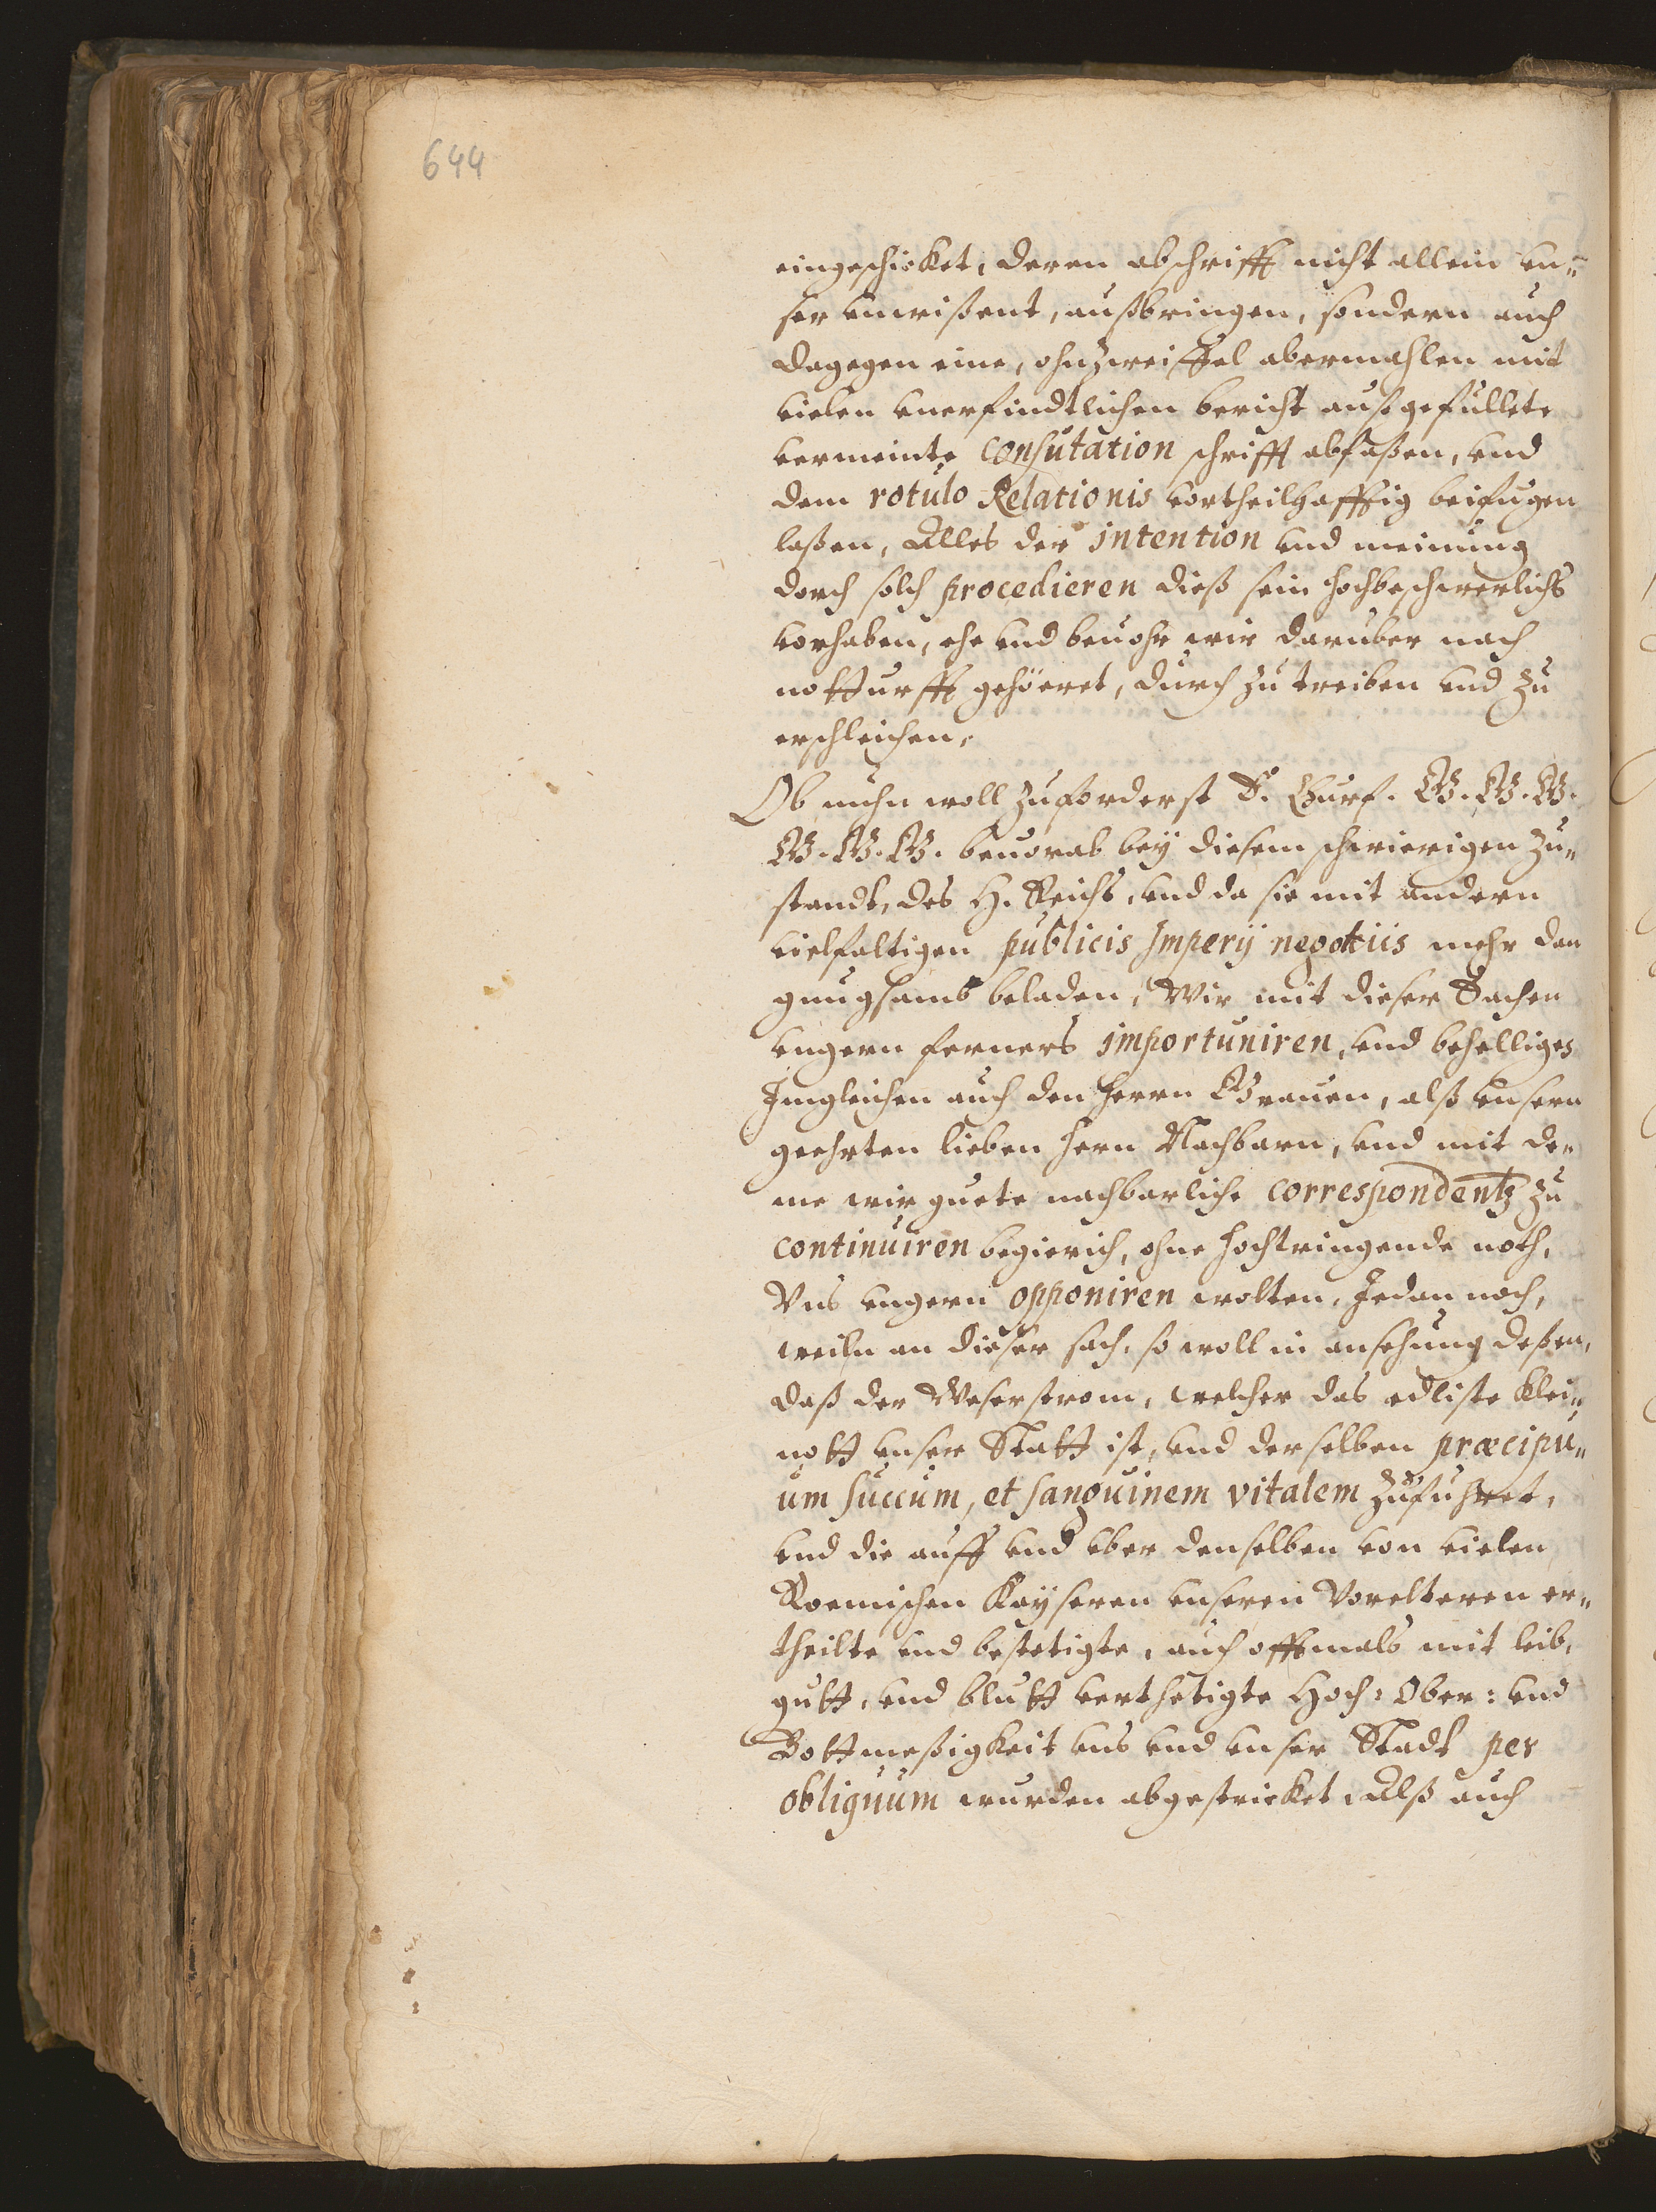 644
eingeschicket, deren abschrifft nicht allein vn„
ser vnwißent, außbringen, sondern auch
dagegen eine, ohnzweiffel abermahlen mit
vielen vnerfindtlichen bericht außgefüllete
vermeinte confutation schrifft abfaßen, vnd
dem rotulo Relationis vortheilhafftig beifugen
laßen, Alles der intention vnd meinung
dorch solch procedieren dieß sein hochbeschwerlichs
vorhaben, ehe vnd beuohr wir daruber nach
notturfft gehöeret, durch zu treiben vnd zu
erschleichen,
Ob nuhn woll zuforderst E. Churf. G. G. G.
G. G. G. beuorab bey diesem schwierigen zu„
standt, des H. Reichs, vnd da sie mit andern
vielfaltigen publicis Imperij negotiis mehr dan
gnugsamb beladen, Wir mit dieser Sachen
vngern ferners importuniren, vnd behelligen
Imgleichen auch den Herrn Grauen, alß vnsern
geehrten lieben Hern Nachbarn, vnd mit de„
me wir guete nachbarliche correspondentz zu
continuiren begierich, ohne hochtringende noth,
Vns vngern opponiren wolten, Jedan noch,
weiln an dieser sach, so woll in ansehung deßen,
daß der Weserstrom, welcher das edliste klei„
nott vnser Statt ist, vnd derselben præcipu„
um succum, et sanguinem vitalem zufuhret,
vnd die auff vnd vber denselben von vielen
Roemischen Kayseren vnseren Vorelteren er„
theilte vnd bestetigte, auch offtmals mit leib,
gutt, vnd blutt verthetigte Hoch: Ober: vnd
Bottmeßigkeit vns vnd vnser Stadt per
obliquum wurden abgestricket, Alß auch